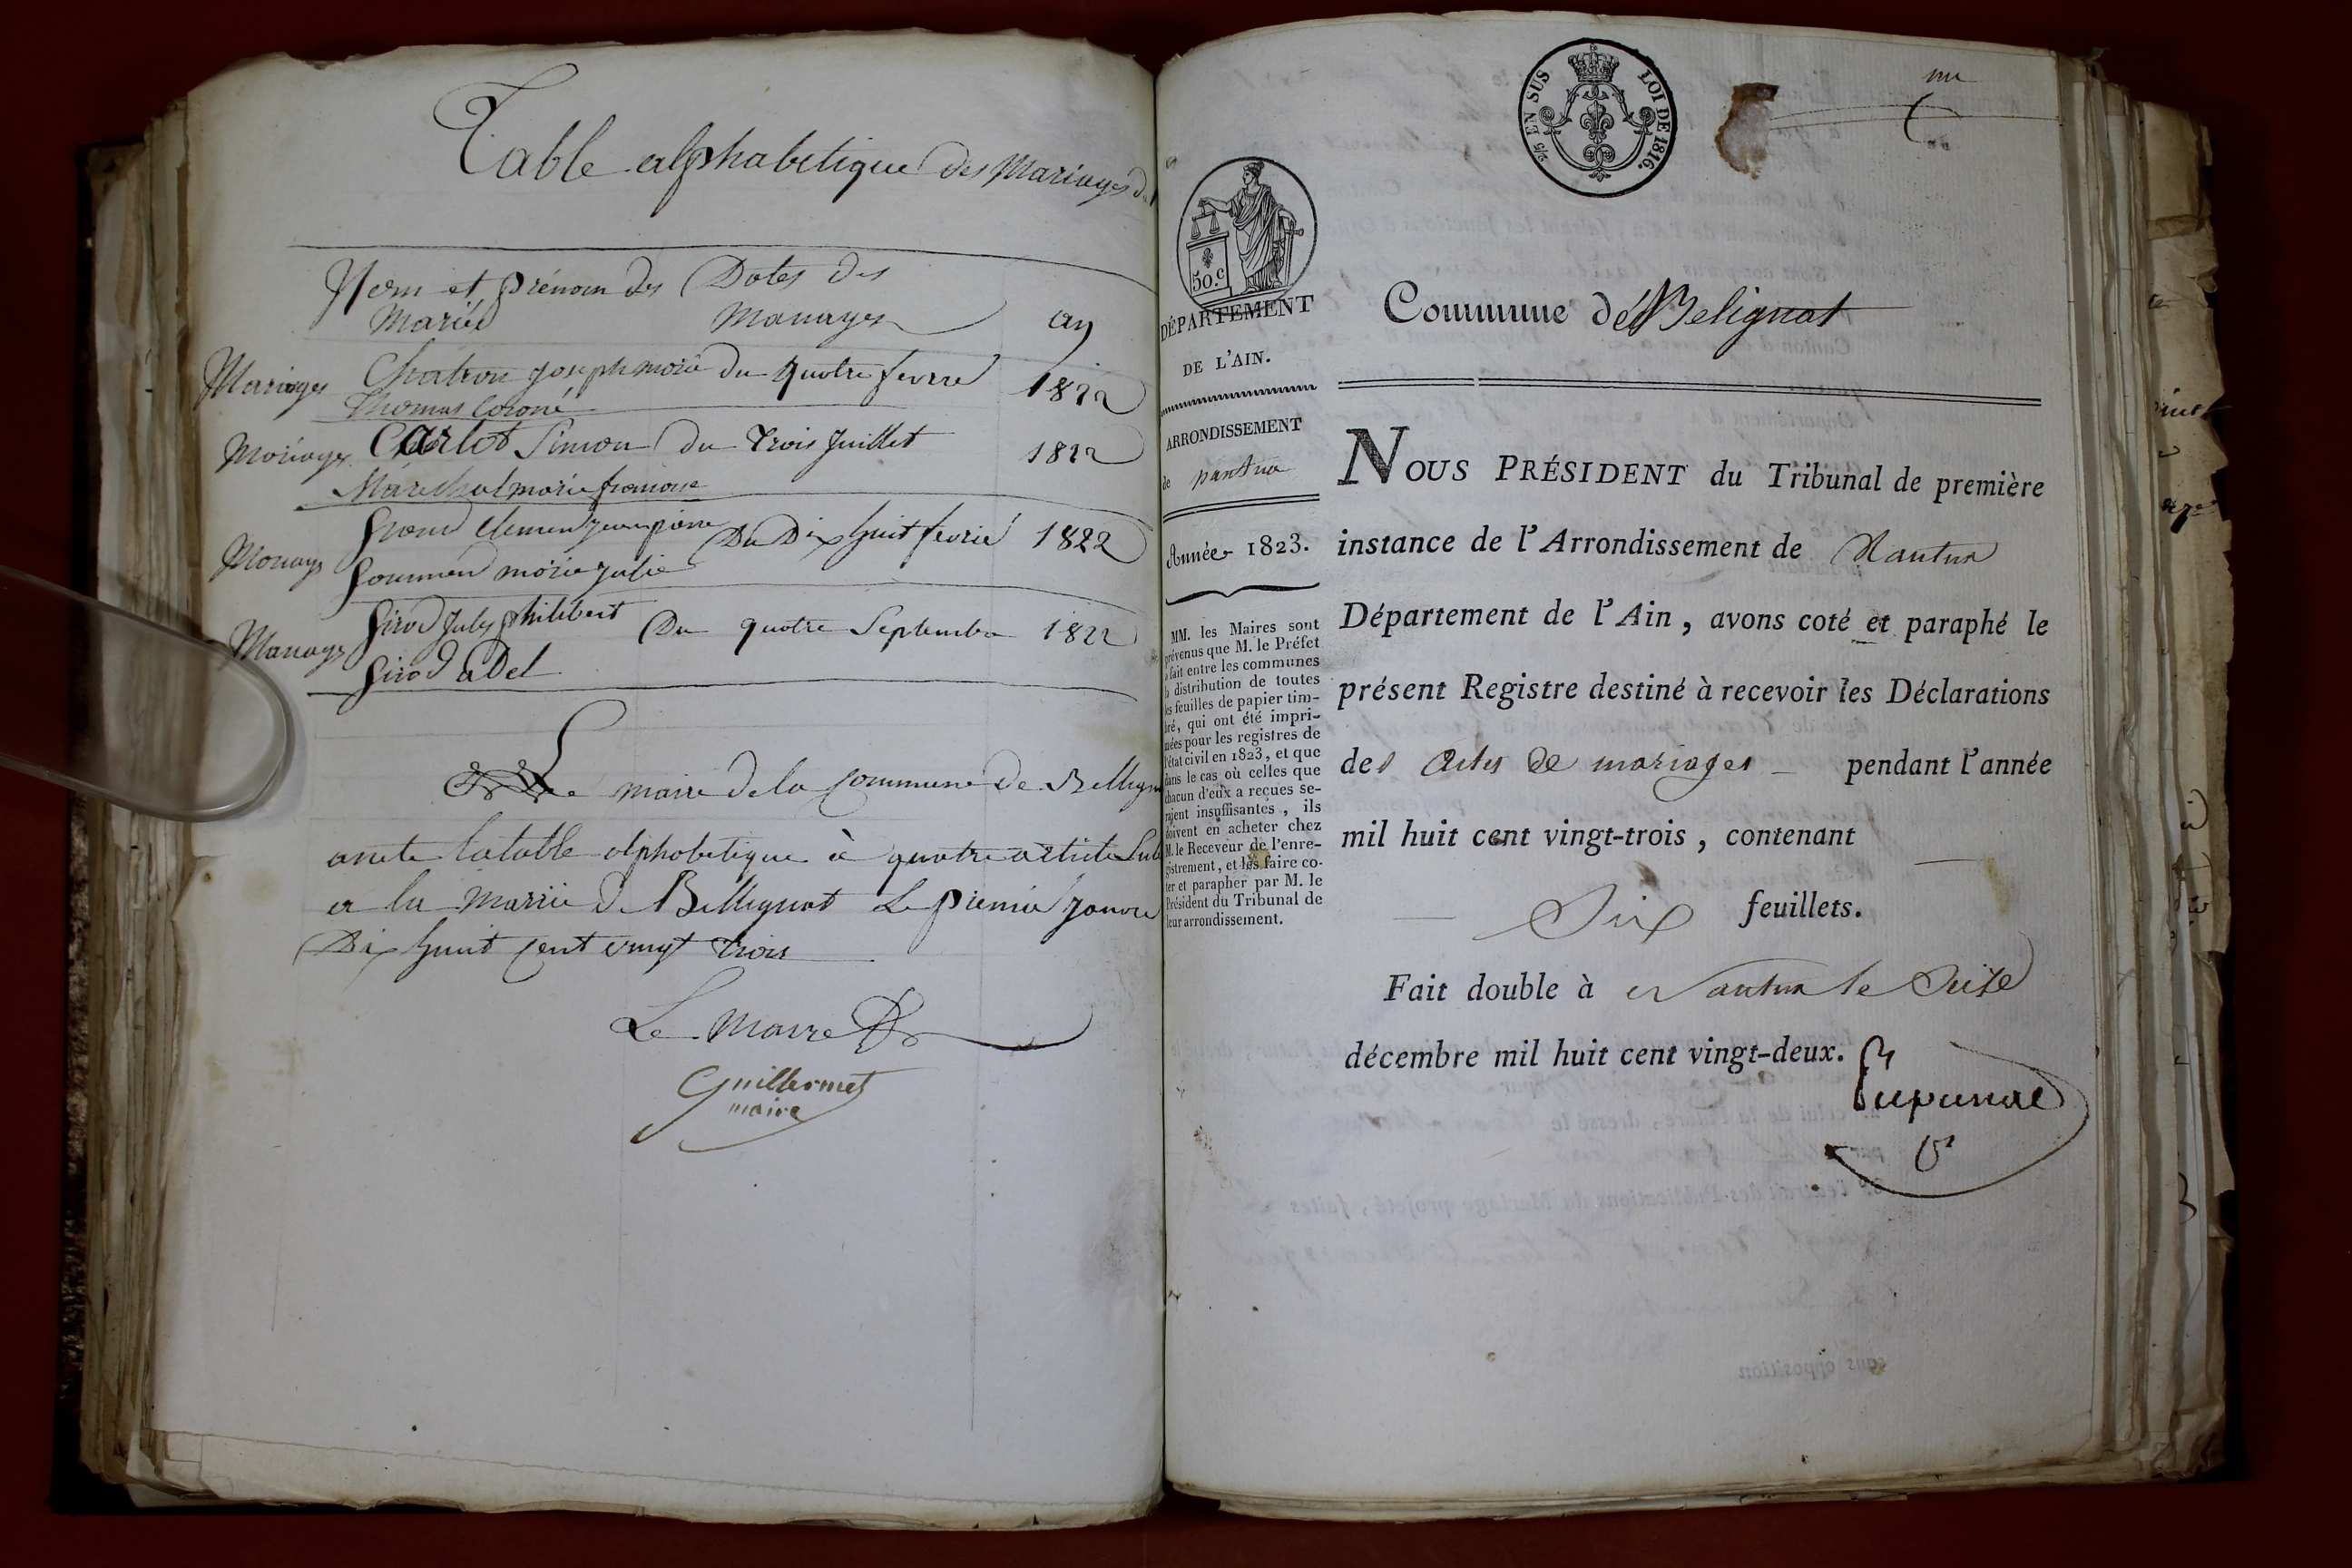 Table alphabetique des Mariages
Nom et prénom des
Mariés
Dates des
Mariages
an
Mariages Chatron joseph marie du quatre fevrie 1822
Thomas
Mariages Carlot Simon du Trois Juillet 1822
Maréchal marie francoise
Mariage Clemen jean pierre Du Dix huit fevrié 1822
marie julie
Mariage Girod Jules philibert Du quatre Septembre 1822
Girod adel
Le maire de la Commune de Bellign
arrete la table alphabetique à quatre article
a la Mairie de Bellignat Le premié janvie
Dix huit cent vingt trois
Le Maire
Guillermet
maire
2/5 EN SUS
LOI DE 1816.
un
50.c
DÉPARTEMENT
DE L'AIN.
ARRONDISSEMENT
de nantua
Année 1823.
MM. les Maires sont
prévenus que M. le Préfet
a fait entre les communes
la distribution de toutes
les feuilles de papier tim-
bré, qui ont été impri-
mées pour les registres de
l'état civil en 1823, et que
dans le cas où celles que
chacun d'eux a reçues se-
raient insuffisantes, ils
doivent en acheter chez
M. le Receveur de l'enre-
gistrement, et les faire co-
ter et parapher par M. le
Président du Tribunal de
leur arrondissement.
Commune de Belignat
NOUS PRÉSIDENT du Tribunal de première
instance de l'Arrondissement de Nantua
Département de l'Ain, avons coté et paraphé le
présent Registre destiné à recevoir les Déclarations
des Actes de mariages pendant l'année
mil huit cent vingt-trois, contenant
Six feuillets.
Fait double à Nantua le Seize
décembre mil huit cent vingt-deux.